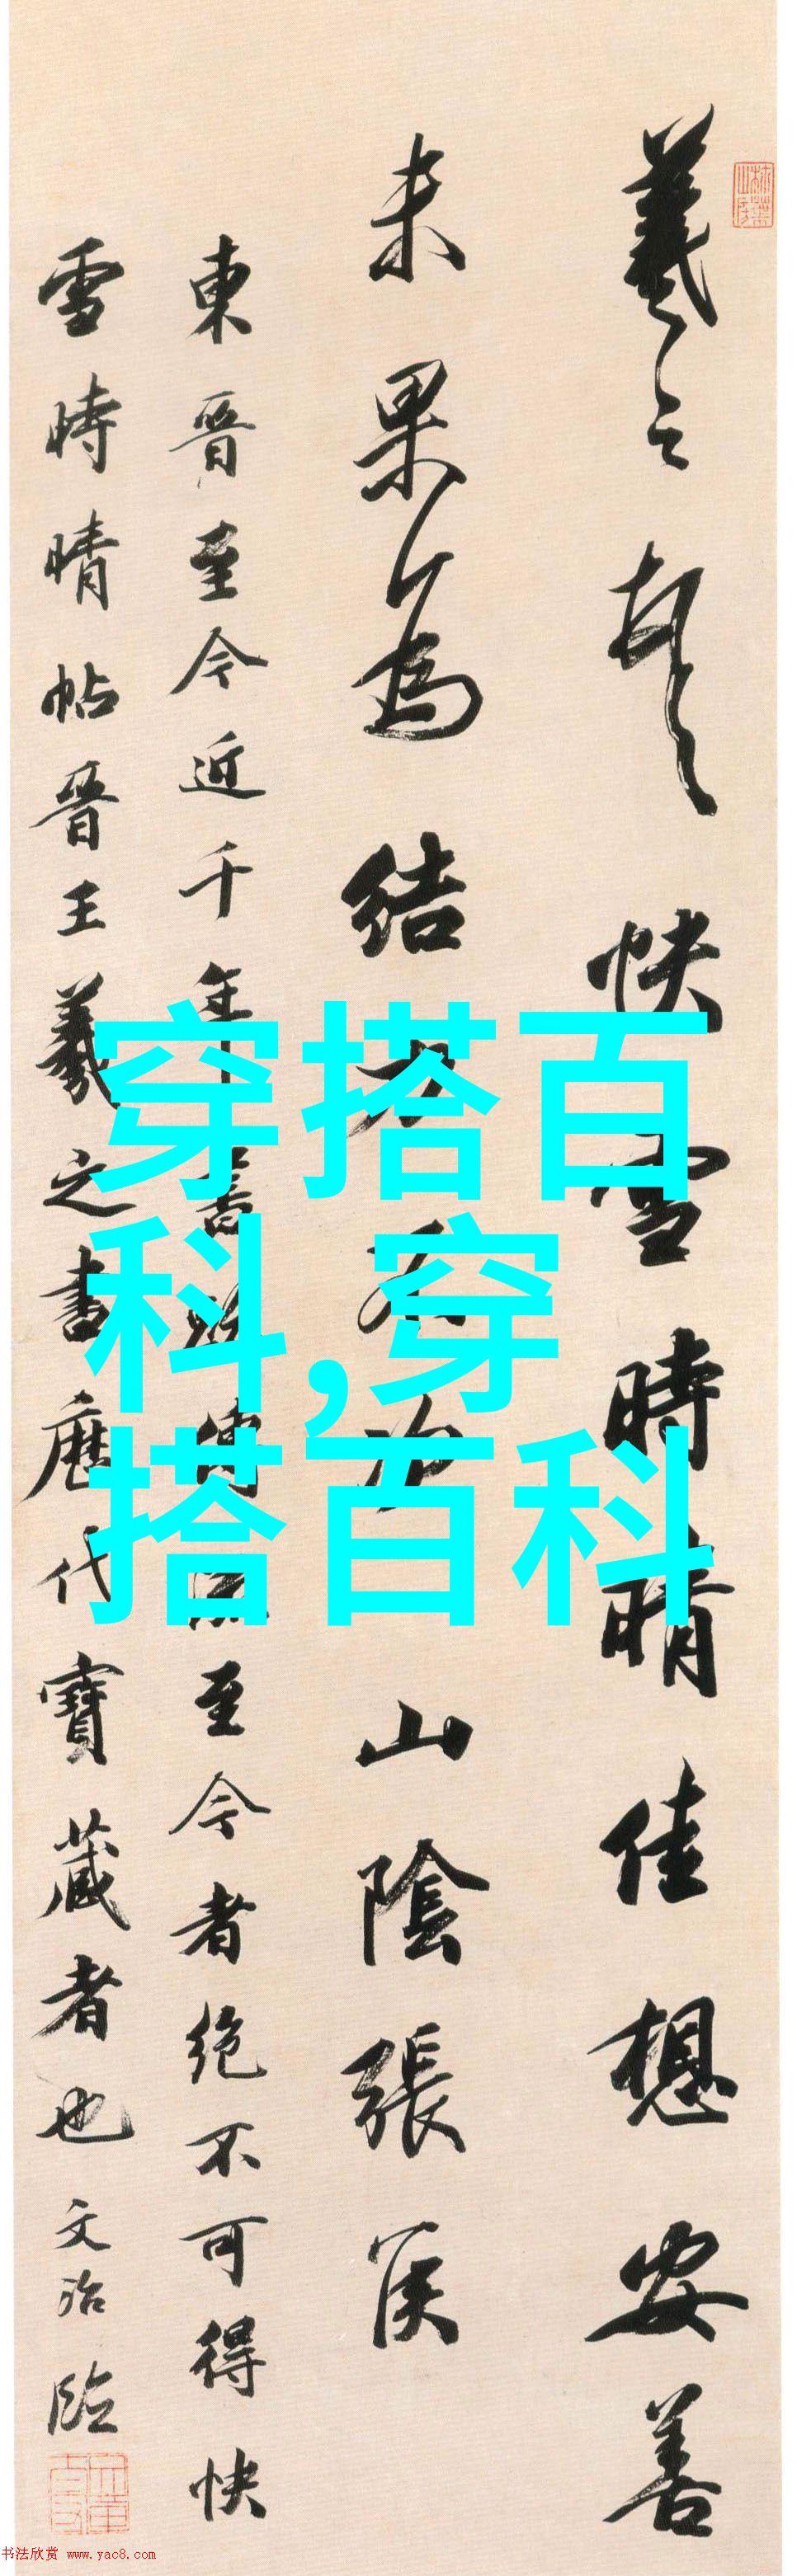 羲之頓首快雪時晴佳想安善
未果為結力不次山陰張侯
東晉至今近千年書跡傳流至今者絕不可得快
雪時晴帖晉王羲之書歷代寶藏者也文治臨
穿搭百
科,穿
搭百科
书法欣赏 www.yac8.com